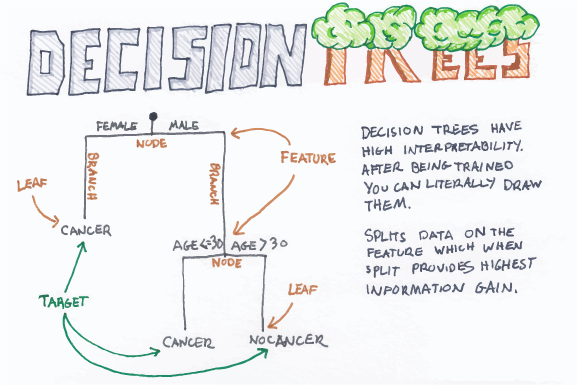 DECISION TREES
FEMALE MALE
NODE
BRANCH
BRANCH
FEATURE
LEAF
CANCER
AGE<=30 AGE>30
NODE
LEAF
TARGET
CANCER
NO CANCER
DECISION TREES HAVE
HIGH INTERPRETABILITY.
AFTER BEING TRAINED
YOU CAN LITERALLY DRAW
THEM.
SPLITS DATA ON THE
FEATURE WHICH WHEN
SPLIT PROVIDES HIGHEST
INFORMATION GAIN.